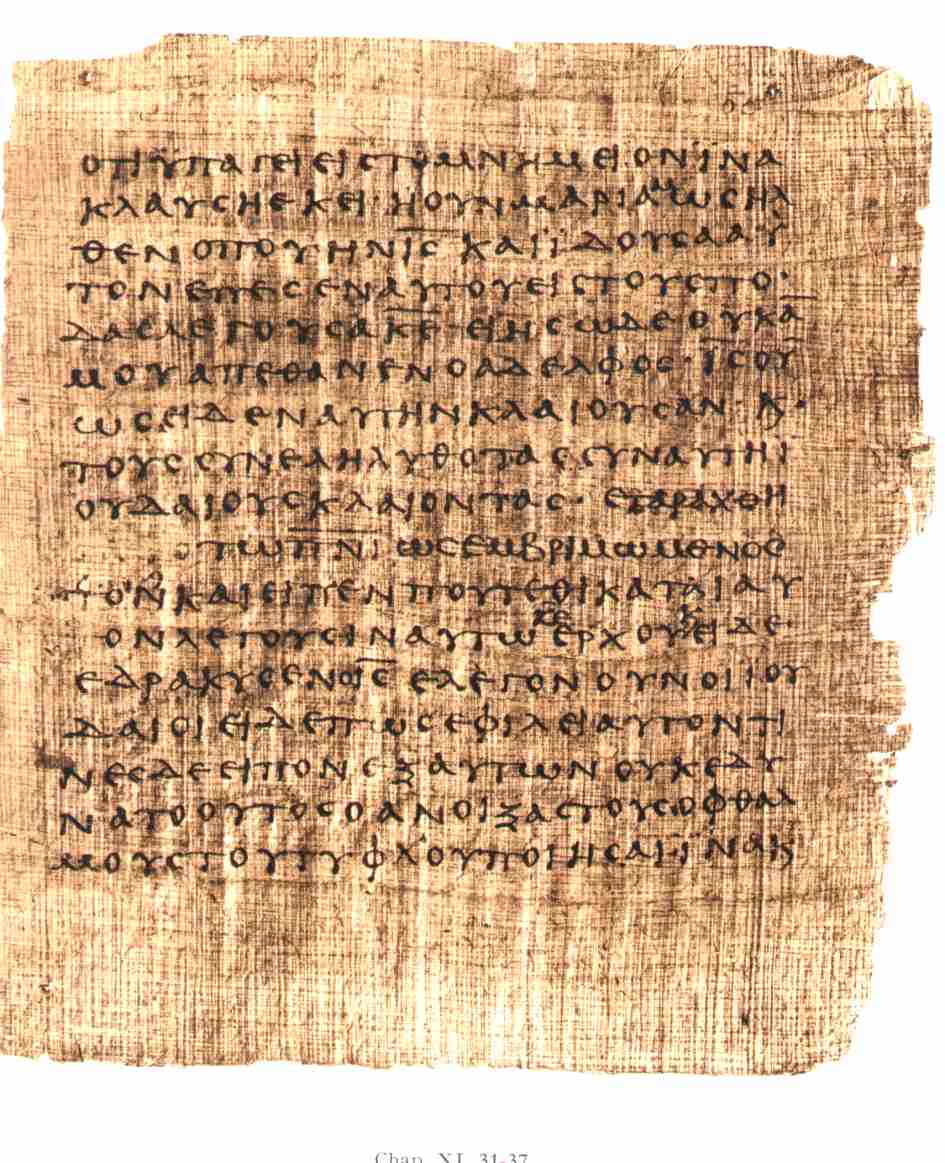 ΟΤΙ ΫΠΑΓΕΙ ΕΙΣ ΤΟ ΜΝΗΜΕΙΟΝ ΪΝΑ
ΚΛΑΥΣΗ ΕΚΕΙ· Η ΟΥΝ ΜΑΡΙΑΜ ΩΣ ΗΛ
ΘΕΝ ΟΠΟΥ ΗΝ Ι̅Σ̅ ΚΑΙ ΪΔΟΥΣΑ ΑΥ
ΤΟΝ ΕΠΕΣΕΝ ΑΥΤΟΥ ΕΙΣ ΤΟΥΣ ΠΟ·
ΔΑΣ ΛΕΓΟΥΣΑ Κ̅Ε̅ ΕΙ ΗΣ ΩΔΕ ΟΥΚ Α̅
ΜΟΥ ΑΠΕΘΑΝΕΝ Ο ΑΔΕΛΦΟΣ· Ι̅Σ̅ ΟΥ̅
ΩΣ ΕΙΔΕΝ ΑΥΤΗΝ ΚΛΑΙΟΥΣΑΝ· Κ·
ΤΟΥΣ ΣΥΝΕΛΗΛΥΘΟΤΑΣ ΣΥΝ ΑΥΤΗ Ϊ
ΟΥΔΑΙΟΥΣ ΚΛΑΙΟΝΤΑΣ· ΕΤΑΡΑΧΘΗ
ΤΩ Π̅Ν̅Ι̅ ΩΣ ΕΜΒΡΙΜΩΜΕΝΟΣ
ΚΑΙ ΕΙΠΕΝ ΠΟΥ ΤΕΘΙΚΑΤΑΙ ΑΥ
ΟΝ ΛΕΓΟΥΣΙΝ ΑΥΤΩ Κ̅Ε̅ ΕΡΧΟΥ Κ ΕΙΔΕ·
ΕΔΡΑΚΥΣΕΝ Ο Ι̅Σ̅ ΕΛΕΓΟΝ ΟΥΝ ΟΙ ΙΟΥ
ΔΑΙΟΙ ΕΙΔΕ ΠΩΣ ΕΦΙΛΕΙ ΑΥΤΟΝ ΤΙ
ΝΕΣ ΔΕ ΕΙΠΟΝ ΕΞ ΑΥΤΩΝ ΟΥΚ ΕΔΥ
ΝΑΤΟ ΟΥΤΟΣ Ο ΑΝΟΙΞΑΣ ΤΟΥΣ ΟΦΘΑΛ
ΜΟΥΣ ΤΟΥ ΤΥΦΛΟΥ ΠΟΙΗΣΑΙ ΪΝΑ Κ
Chap. XI, 31-37